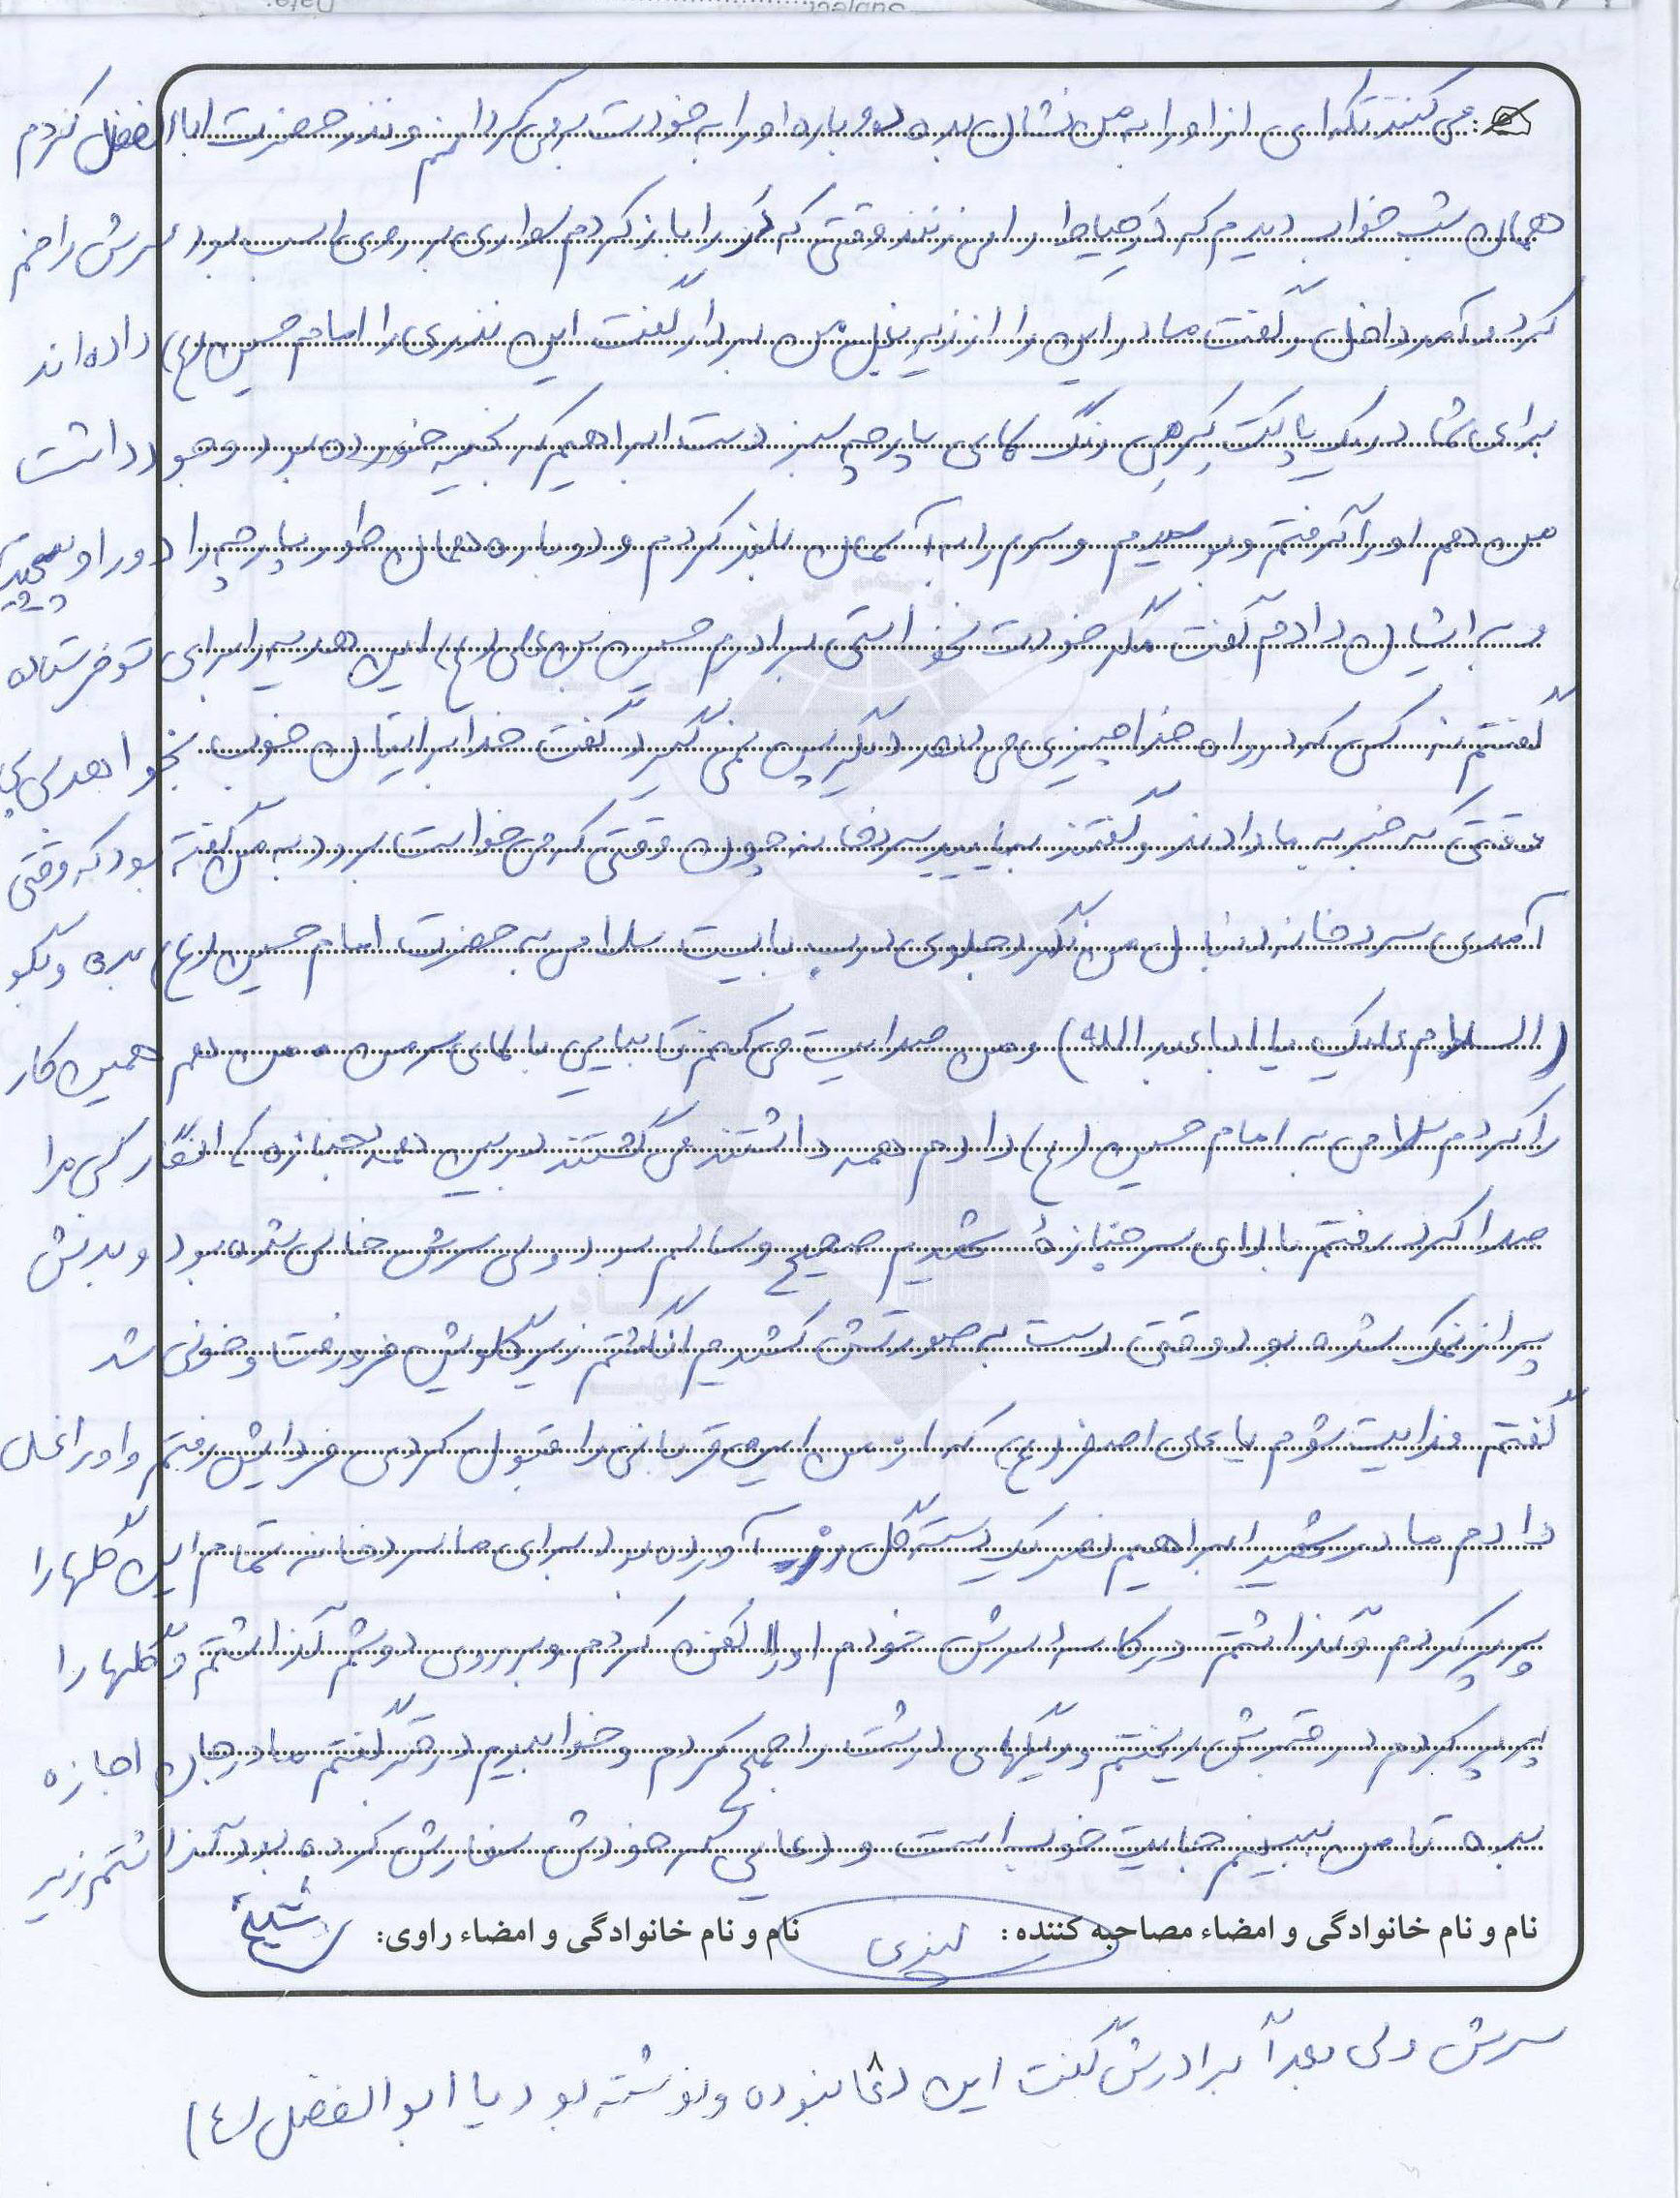 می کنند تکه ای از او را به من نشان بده دوباره او را به خودت برمی گردانم و نذر حضرت اباالفضل کردم
همان شب خواب دیدم که درِ حیاط را می زنند وقتی که در را باز کردم سواری بر روی اسب بود سرش را خم
کرد و آمد داخل و گفت مادر این را از زیر بغل من بردار گفت این نذری را امام حسین (ع) داده اند
برای شما در یک پاکت کِرمی رنگ کمای پارچه سبز دست ابراهیم که بخیه خورده بود وجود داشت
من هم او را گرفتم و بوسیدم و سرم را به آسمان بلند کردم و دوباره همان طور پارچه را دور او پیچیدم
و به ایشان دادم گفت مگر خودت نخواستی برادرم حسین بن علی (ع) این هدیه را برای تو فرستاده
گفتم نه کسی که در راه خدا چیزی می دهد دیگر پس نمی گیرد گفت خدا برایتان خوب بخواهد
وقتی که خبر به ما دادند و گفتند بیایید سردخانه چون وقتی که می خواست برود به من گفته بود که وقتی
آمدی سردخانه دنبال من نگرد جلوی درب بایست سلامی به حضرت امام حسین (ع) بده و بگو
(السلام علیک یا اباعبدالله) و من صدایت می کنم تا بیایی بالای سر من من هم همین کار
را کردم سلامی به امام حسین (ع) دادم همه داشتند می گشتند در بین همه جنازه ها انگار کسی مرا
صدا کرد رفتم بالای سر جنازهٔ شهیدم صحیح و سالم بود ولی سرش خالی شده بود و بدنش
پر از نمک شده بود وقتی دست به صورتش کشیدم انگشتم زیر گلویش فرو رفت و خونی شد
گفتم فدایت شوم یا علی اصغر (ع) که از من این قربانی را قبول کردی فردایش رفتم و او را غسل
دادم مادر شهید ابراهیم نصر یک دسته گل رز آورده بود برای ما سردخانه تمام این گلها را
پرپر کردم و گذاشتم در کاسه سرش خودم او را کفن کردم و بر روی دوشم گذاشتم و گلها را
پرپر کردم در قبرش ریختم و ریگهای درشت را جمع کردم و خوابیدم در قبر گفتم مادر جان اجازه
بده تا من ببینم جایت خوب است و دعایی که خودش سفارش کرده بود گذاشتم زیر
نام و نام خانوادگی و امضاء مصاحبه کننده: نام و نام خانوادگی و امضاء راوی:
سرش ولی بعداً برادرش گفت این دعا نبوده و نوشته بود یا ابوالفضل (ع)